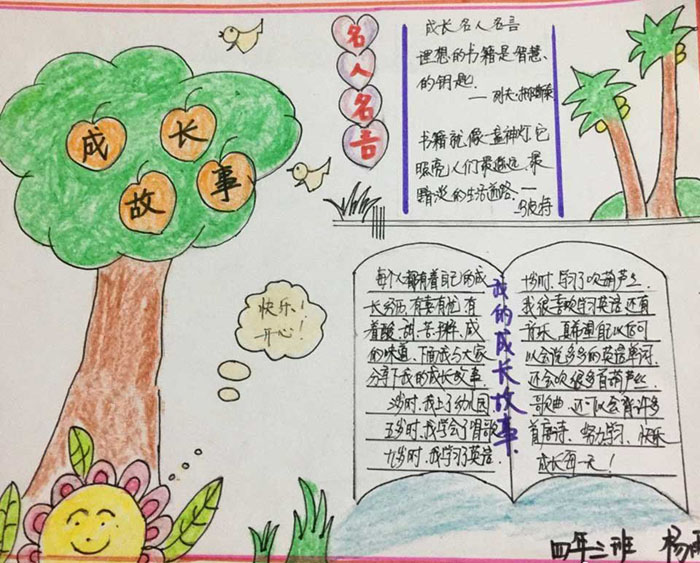 成长
故事
名人名言
成长名人名言
理想的书籍是智慧
的钥匙.
书籍就像一盏神灯,它
照亮人们最遥远、最
黯淡的生活道路.——
快乐!
开心!
我的成长故事
每个人都有着自己的成
长经历,有喜有忧,有
着酸、甜、苦、辣、咸
的味道.下面我与大家
分享下我的成长故事
3岁时,我上了幼儿园
五岁时,我学会了唱歌
九岁时,我学习了英语.
十岁时,学习了吹葫芦丝.
我很喜欢学习英语还有
音乐,真希望自己以后可
以会说多多的英语单词.
还会吹很多首葫芦丝
歌曲,还可以会背许多
首唐诗、努力学习、快乐
成长每一天!
四年二班 杨